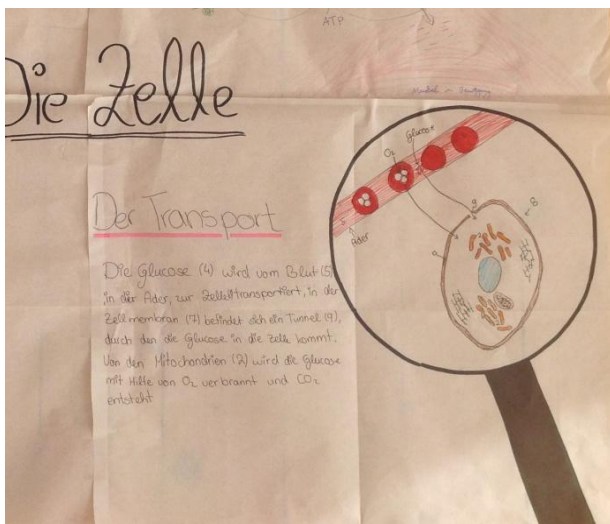 ATP
Die Zelle
Muskel in Bewegung
O₂
Glucose
Ader
5
9
8
Der Transport
Die Glucose (4) wird vom Blut (5)
in der Ader, zur Zelle transportiert, in der
Zellmembran (7) befindet sich ein Tunnel (9),
durch den die Glucose in die Zelle kommt.
Von den Mitochondrien (2) wird die Glucose
mit Hilfe von O₂ verbrannt und CO₂
entsteht